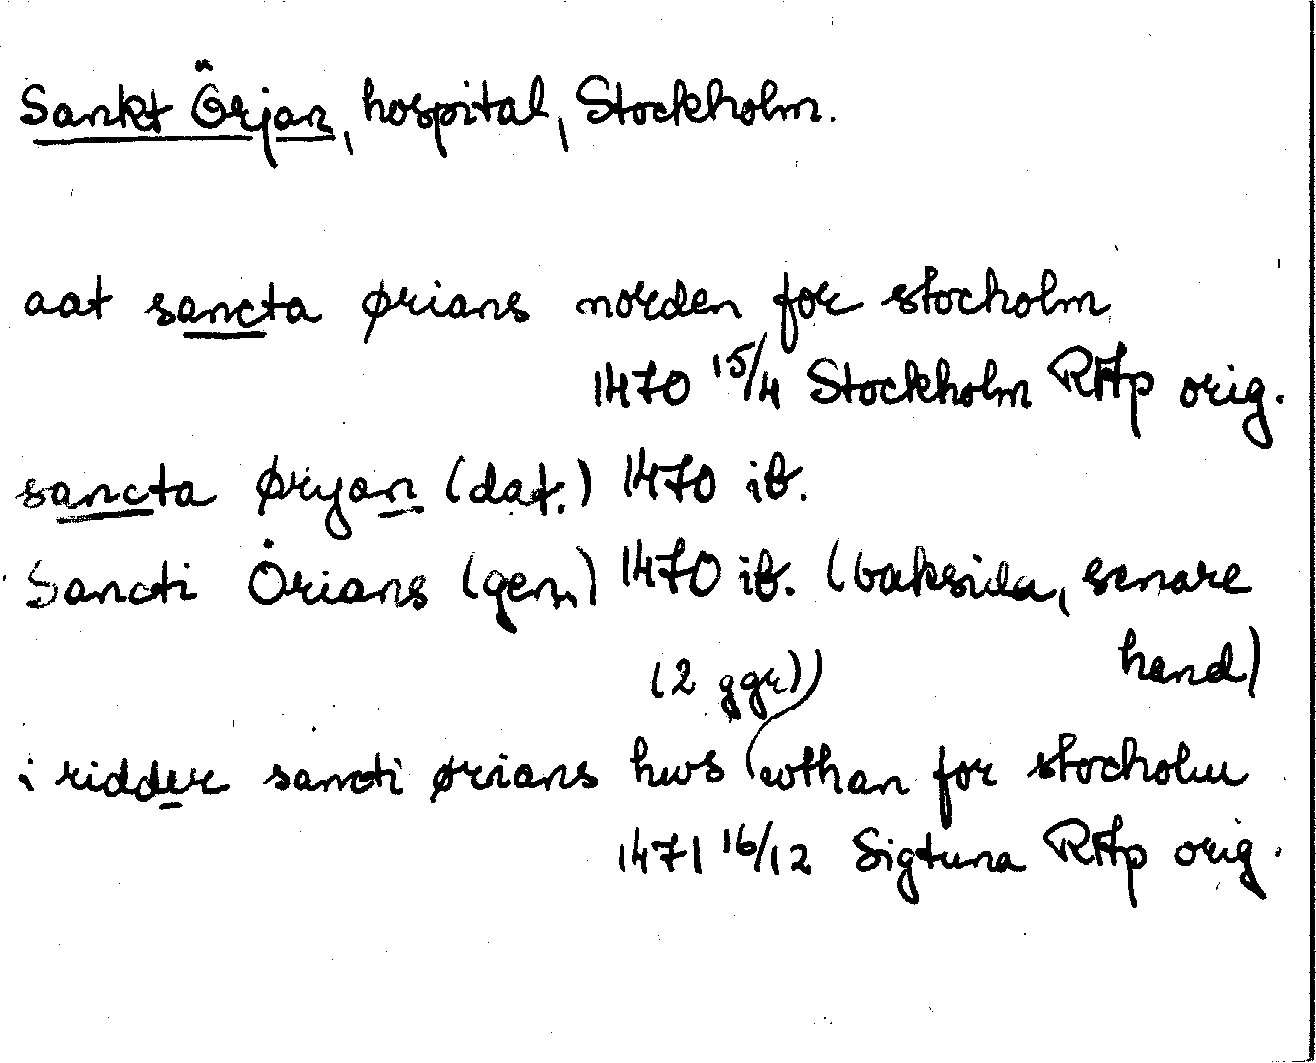 Sankt Örjan, hospital, Stockholm.
aat sancta ørians norden for stocholm
1470 15/4 Stockholm RAp orig.
sancta øryan (dat.) 1470 ib.
Sancti Örians (gen.) 1470 ib. (baksida, senare
hand)
(2 ggr))
i ridder sancti ørians hws (wthan for stocholm
1471 16/12 Sigtuna RAp orig.